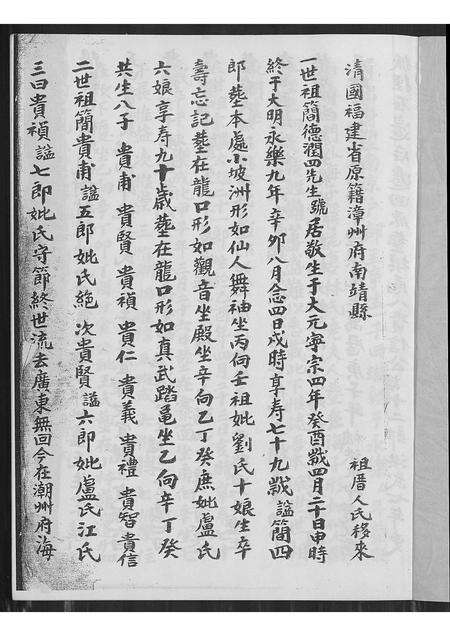 清國福建省原籍漳州府南靖縣 祖厝人氏移來
一世祖簡德潤四先生號居敬生于大元寧宗四年癸酉歲四月二十日申時
終于大明永樂九年辛卯八月念四日戌時享寿七十九歲謚簡四
郎墓本處小坡洲形如仙人舞袖坐丙向壬祖妣劉氏十娘生卒
壽忘記墓在龍口形如觀音坐殿坐辛向乙丁癸庶妣盧氏
六娘享寿九十歲墓在龍口形如真武踏龜坐乙向辛丁癸
共生八子 貴甫 貴賢 貴禎 貴仁 貴義 貴禮 貴智 貴信
二世祖簡貴甫謚五郎妣氏絕 次貴賢謚六郎妣盧氏江氏
三曰貴禎謚七郎妣氏守節終世流去廣東無回今在潮州府海